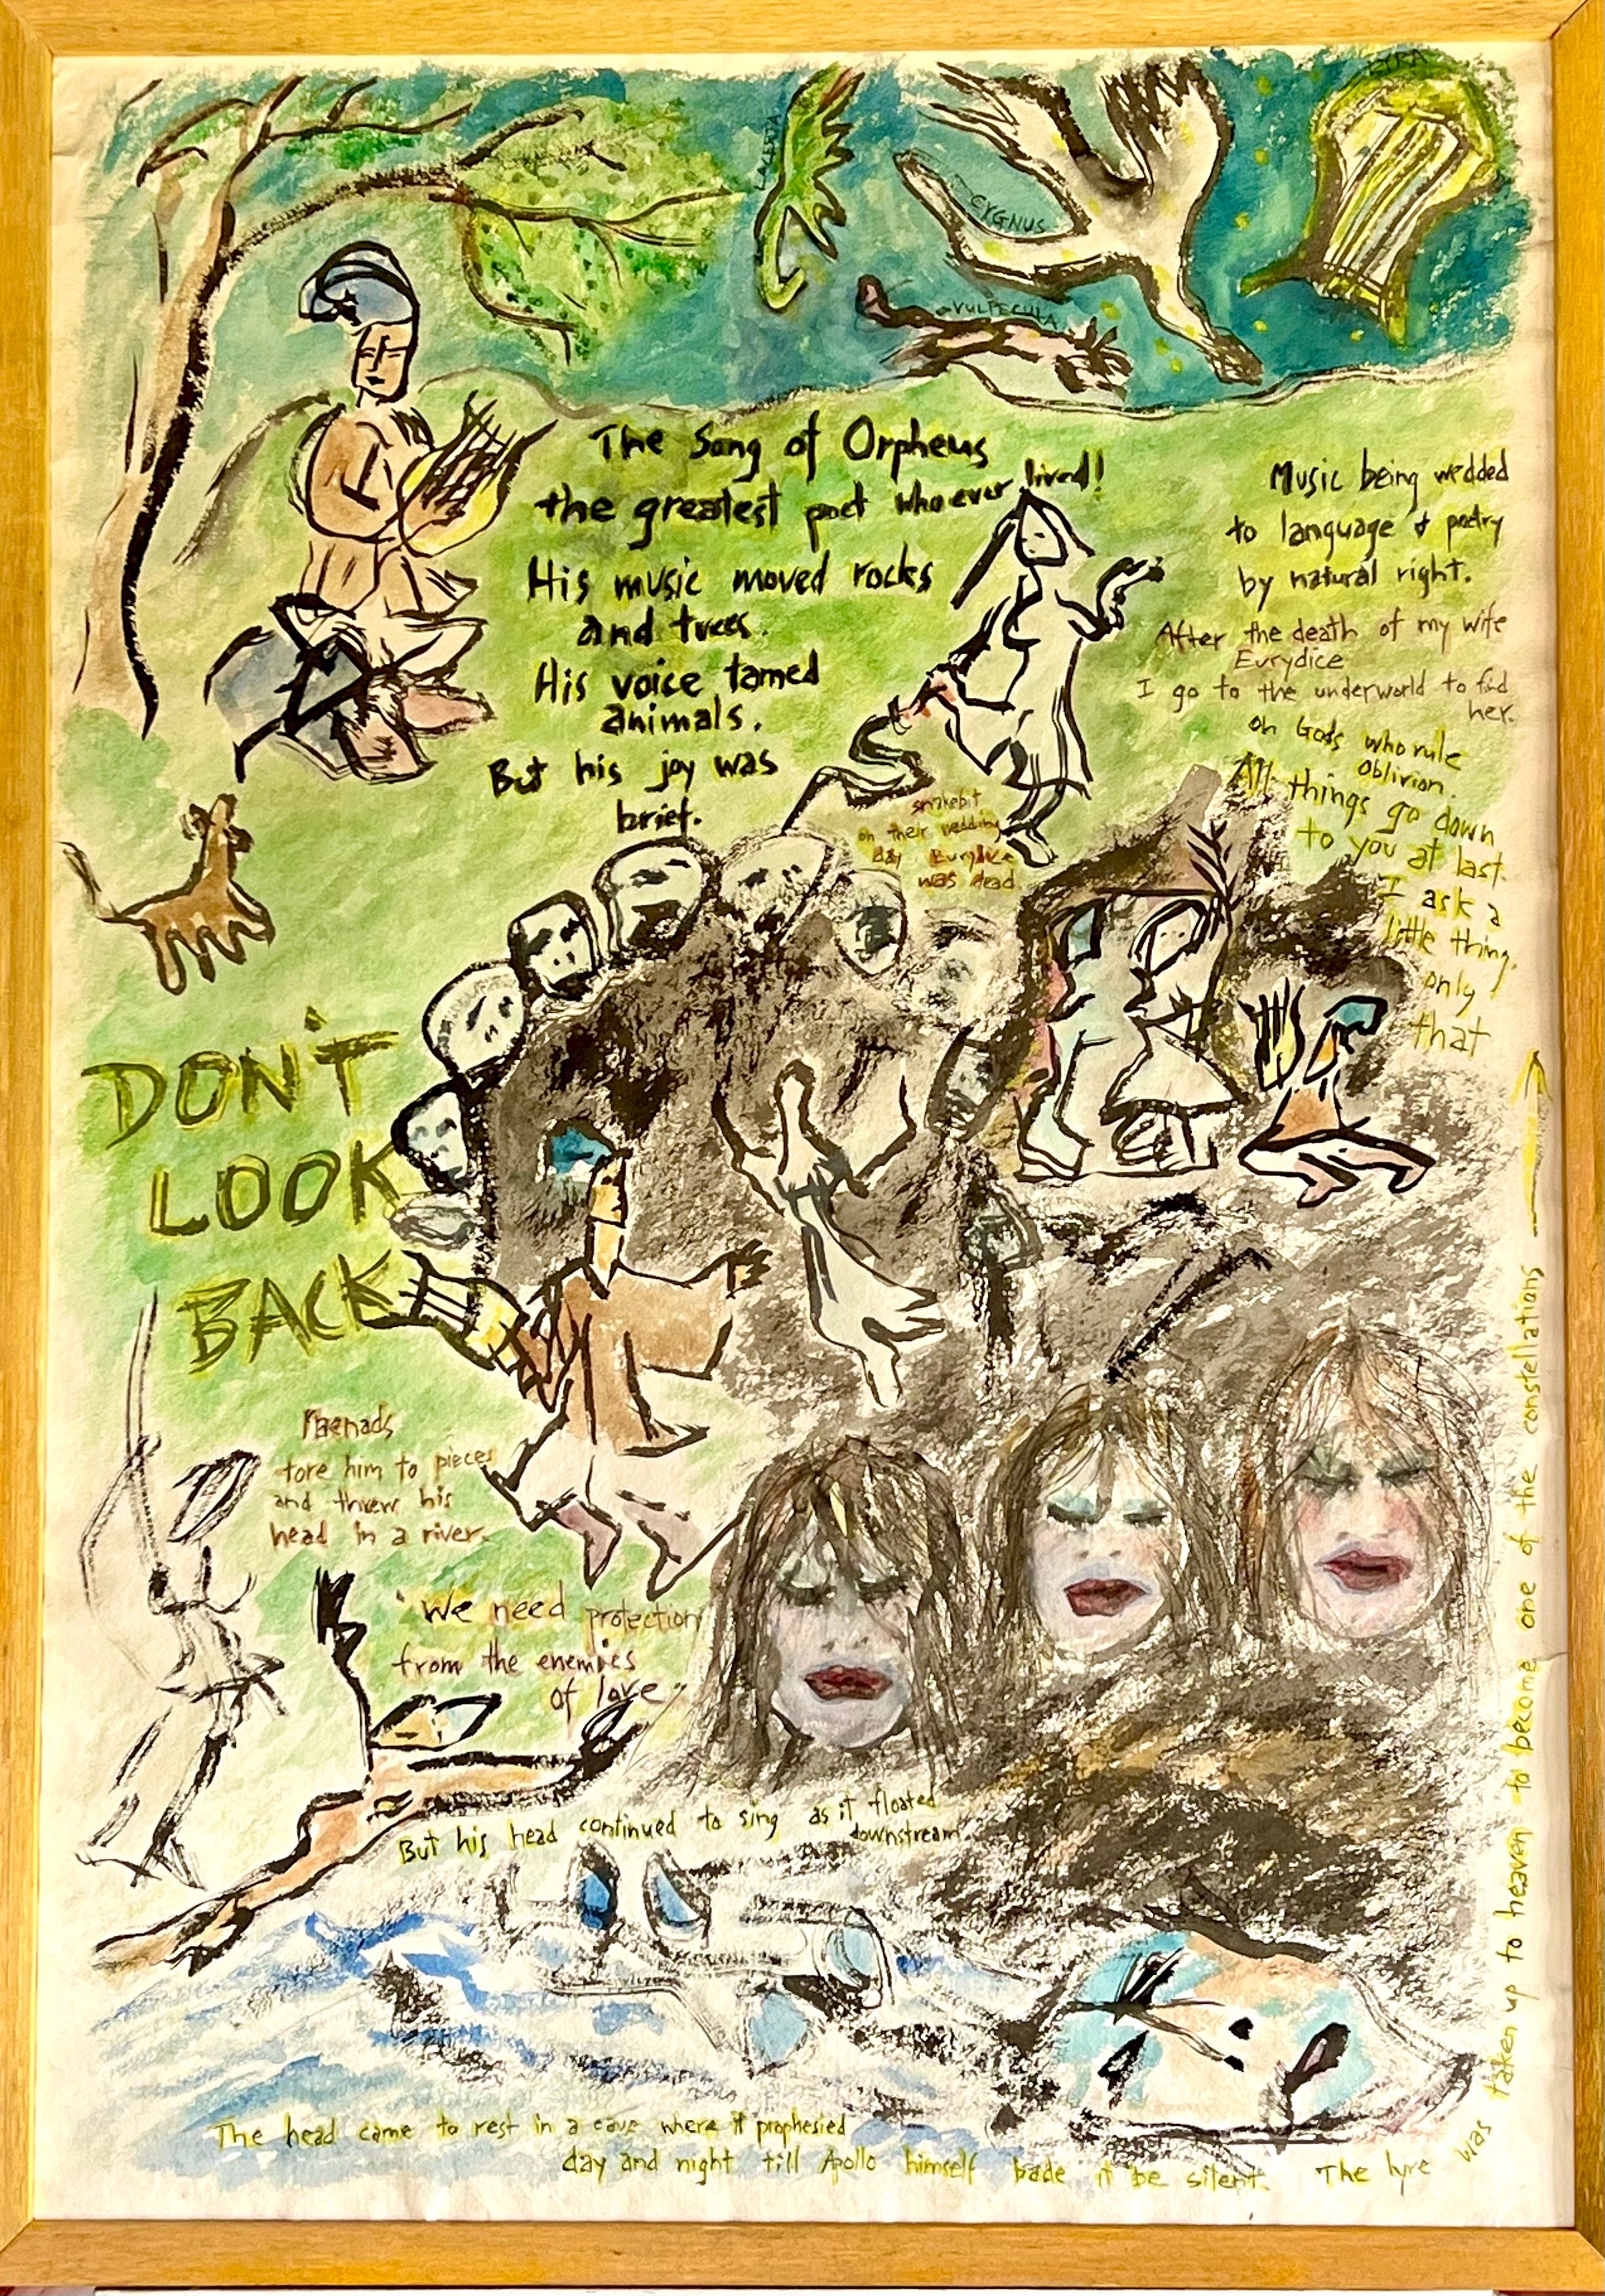 LACERTA
CYGNUS
VULPECULA
LYRA
The Song of Orpheus
the greatest poet who ever lived!
His music moved rocks
and trees.
His voice tamed
animals.
But his joy was
brief.
Music being wedded
to language & poetry
by natural right.
After the death of my wife
Eurydice
I go to the underworld to find
her.
oh Gods who rule
Oblivion.
All things go down
to you at last.
I ask a
little thing.
only
that
snakebit
on their wedding
day Eurydice
was dead.
DON'T
LOOK
BACK
Maenads
tore him to pieces
and threw his
head in a river.
"We need protection
from the enemies
of love"
But his head continued to sing as it floated
downstream.
The head came to rest in a cave where it prophesied
day and night till Apollo himself bade it be silent. The lyre
was taken up to heaven to become one of the constellations